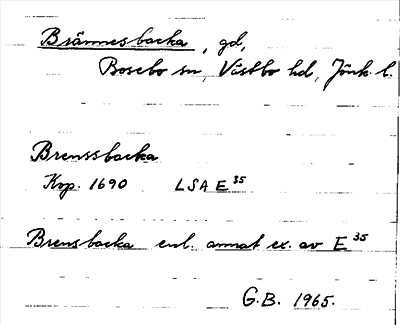 Brännesbacka, gd,
Bosebo sn, Västbo hd, Jönk. l.
Brenssbacka
Krp. 1690 LSA E 35
Brensbacka enl. annat ex. av E 35
G.B. 1965.